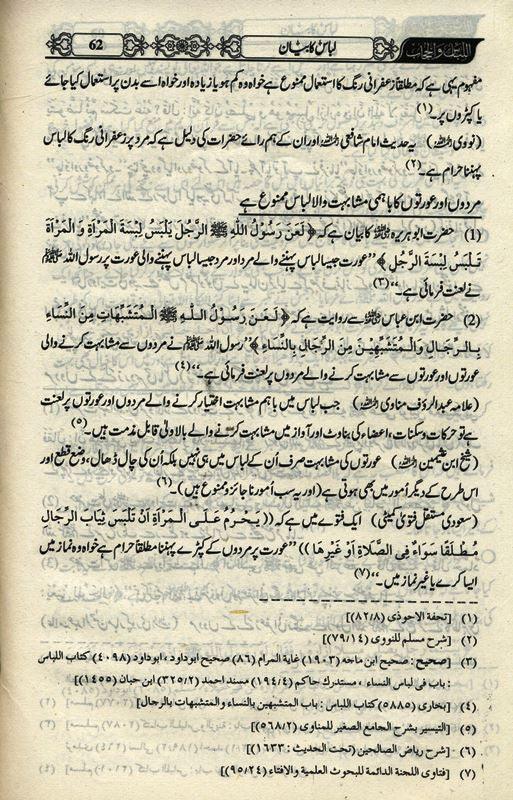 اللباس والحجاب لباس کا بیان 62
مفہوم یہی ہے کہ مطلقاً زعفرانی رنگ کا استعمال ممنوع ہے خواہ وہ کم ہو یا زیادہ اور خواہ اسے بدن پر استعمال کیا جائے
یا کپڑوں پر۔(۱)
(نووی رحمہ اللہ) یہ حدیث امام شافعی رحمہ اللہ اور ان کے ہم رائے حضرات کی دلیل ہے کہ مرد پر زعفرانی رنگ کا لباس
پہننا حرام ہے۔(۲)
مردوں اور عورتوں کا باہمی مشابہت والا لباس ممنوع ہے
(1) حضرت ابو ہریرہ رضی اللہ عنہ کا بیان ہے کہ ﴿ لَعَنَ رَسُوْلُ اللّٰهِ ﷺ الرَّجُلَ يَلْبَسُ لِبْسَةَ الْمَرْأَةِ وَ الْمَرْأَةَ
تَلْبَسُ لِبْسَةَ الرَّجُلِ ﴾ ”عورت جیسا لباس پہننے والے مرد اور مرد جیسا لباس پہننے والی عورت پر رسول اللہ ﷺ
نے لعنت فرمائی ہے۔“(۳)
(2) حضرت ابن عباس رضی اللہ عنہ سے روایت ہے کہ ﴿ لَعَنَ رَسُوْلُ اللّٰهِ ﷺ الْمُتَشَبِّهَاتِ مِنَ النِّسَاءِ
بِالرِّجَالِ وَالْمُتَشَبِّهِيْنَ مِنَ الرِّجَالِ بِالنِّسَاءِ ﴾ ”رسول اللہ ﷺ نے مردوں سے مشابہت کرنے والی
عورتوں اور عورتوں سے مشابہت کرنے والے مردوں پر لعنت فرمائی ہے۔“(٤)
(علامہ عبدالرؤف مناوی رحمہ اللہ) جب لباس میں باہم مشابہت اختیار کرنے والے مردوں اور عورتوں پر لعنت
ہے تو حرکات و سکنات، اعضاء کی بناوٹ اور آواز میں مشابہت کرنے والے بالاولیٰ قابل مذمت ہیں۔(٥)
(شیخ ابن عثیمین رحمہ اللہ) عورتوں کی مشابہت صرف اُن کے لباس میں ہی نہیں بلکہ اُن کی چال ڈھال، وضع قطع اور
اس طرح کے دیگر اُمور میں بھی ہوتی ہے (اور یہ سب اُمور ناجائز و ممنوع ہیں)۔(٦)
(سعودی مستقل فتویٰ کمیٹی) ایک فتوے میں ہے کہ (( يَحْرُمُ عَلَى الْمَرْأَةِ اَنْ تَلْبَسَ ثِيَابَ الرِّجَالِ
مُطْلَقًا سَوَاءً فِي الصَّلَاةِ اَوْ غَيْرِهَا )) ”عورت پر مردوں کے کپڑے پہننا مطلقاً حرام ہے خواہ وہ نماز میں
ایسا کرے یا غیر نماز میں۔“(٧)
(١) [تحفة الاحوذى (٨٢/٨)]
(٢) [شرح مسلم للنووى (٧٩/١٤)]
(٣) [صحیح : صحیح ابن ماجه (١٩٠٣) غایة المرام (٨٦) صحیح ابوداود ، ابوداود (٤٠٩٨) کتاب اللباس
: باب فى لباس النساء ، مستدرك حاکم (١٩٤/٤) مسند احمد (٣٢٥/٢) ابن حبان (١٤٥٥)]
(٤) [بخارى (٥٨٨٥) کتاب اللباس : باب المتشبهين بالنساء والمتشبهات بالرجال]
(٥) [التيسير بشرح الجامع الصغير للمناوى (٥٦٨/٢)]
(٦) [شرح رياض الصالحين (تحت الحديث : ١٦٣٣)]
(٧) [فتاوى اللجنة الدائمة للبحوث العلمية والافتاء (٩٥/٢٤)]